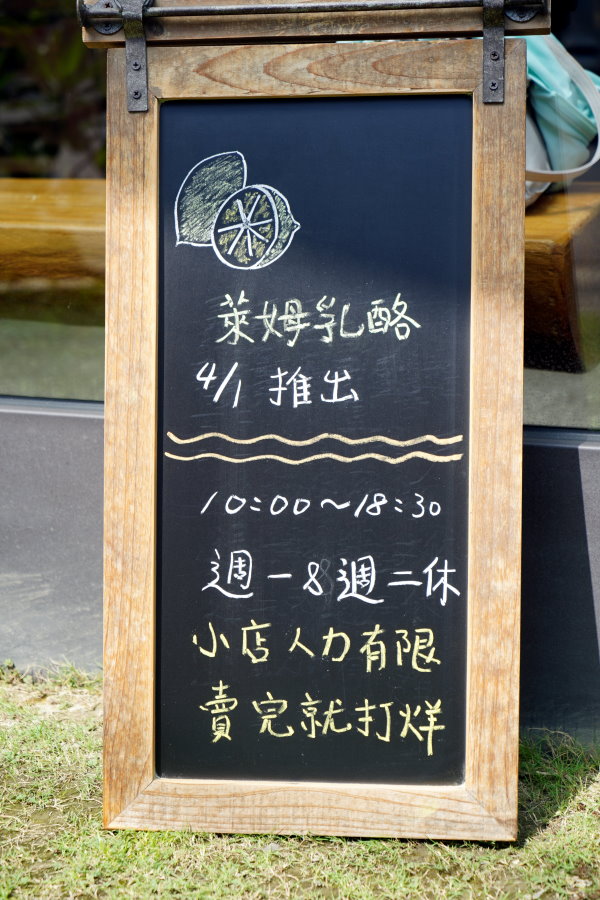 萊姆乳酪
4/1 推出
10:00～18:30
週一&週二休
小店人力有限
賣完就打烊